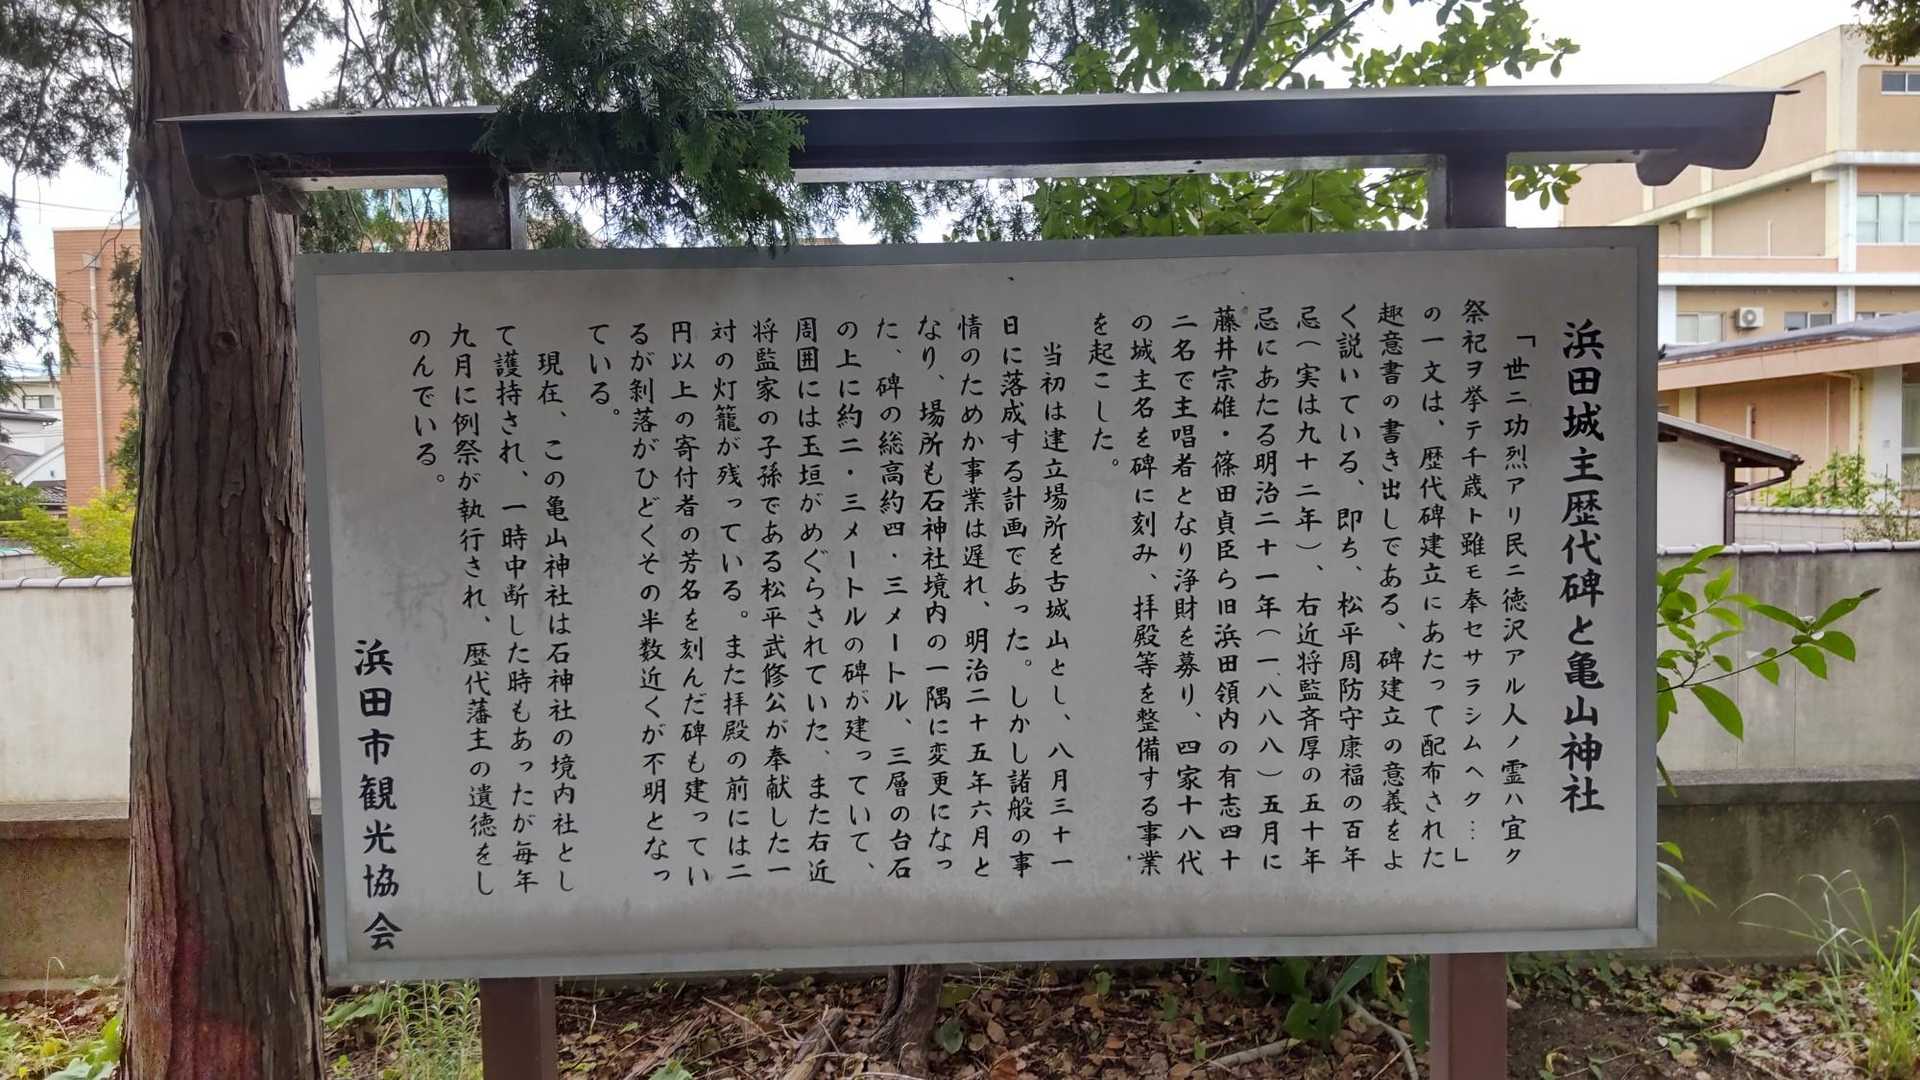 浜田城主歴代碑と亀山神社
「世ニ功烈アリ民ニ徳沢アル人ノ霊ハ宜ク
祭祀ヲ挙テ千歳ト雖モ奉セサラシムヘク…」
の一文は、歴代碑建立にあたって配布された
趣意書の書き出しである、碑建立の意義をよ
く説いている、即ち、松平周防守康福の百年
忌（実は九十二年）、右近将監斉厚の五十年
忌にあたる明治二十一年（一八八八）五月に
藤井宗雄・篠田貞臣ら旧浜田領内の有志四十
二名で主唱者となり浄財を募り、四家十八代
の城主名を碑に刻み、拝殿等を整備する事業
を起こした。
当初は建立場所を古城山とし、八月三十一
日に落成する計画であった。しかし諸般の事
情のためか事業は遅れ、明治二十五年六月と
なり、場所も石神社境内の一隅に変更になっ
た、碑の総高約四・三メートル、三層の台石
の上に約二・三メートルの碑が建っていて、
周囲には玉垣がめぐらされていた、また右近
将監家の子孫である松平武修公が奉献した一
対の灯籠が残っている。また拝殿の前には二
円以上の寄付者の芳名を刻んだ碑も建ってい
るが剝落がひどくその半数近くが不明となっ
ている。
現在、この亀山神社は石神社の境内社とし
て護持され、一時中断した時もあったが毎年
九月に例祭が執行され、歴代藩主の遺徳をし
のんでいる。
浜田市観光協会